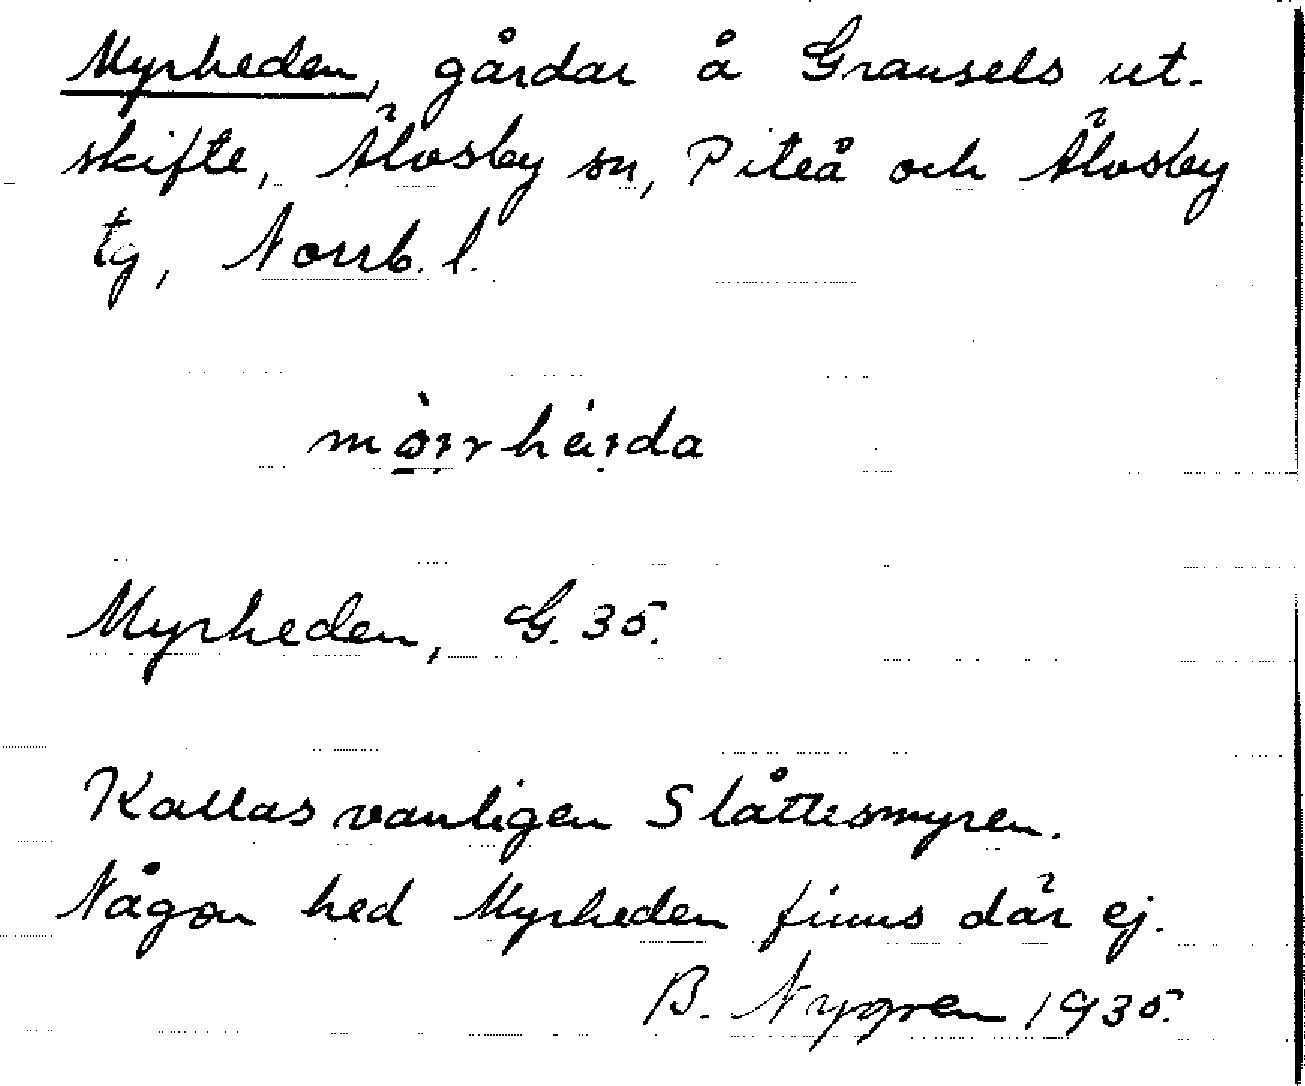 Myrheden, gårdar å Gransels ut-
skifte, Älvsby sn, Piteå och Älvsby
tg, Norrb. l.
Myrheden, G. 35.
Kallas vanligen Slåttesmyren.
Någon hed Myrheden finns där ej.
B. Nygren 1935.